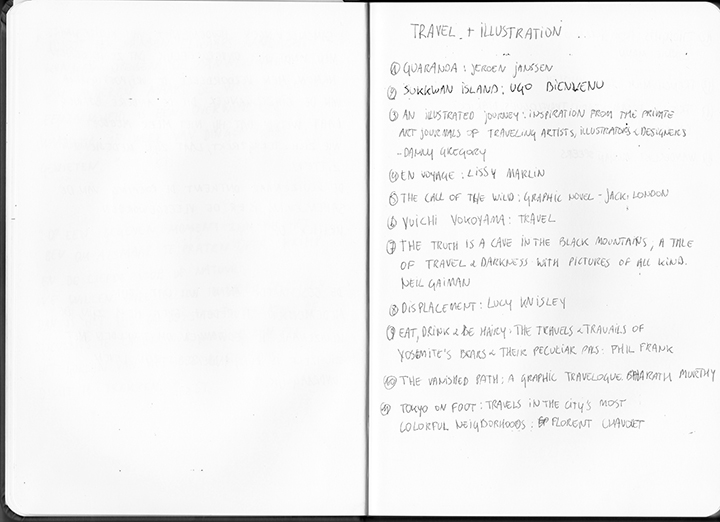 TRAVEL + ILLUSTRATION
① GUARANDA : JEROEN JANSSEN
② SUKKWAN ISLAND : UGO BIENVENU
③ AN ILLUSTRATED JOURNEY : INSPIRATION FROM THE PRIVATE
ART JOURNALS OF TRAVELING ARTISTS, ILLUSTRATORS & DESIGNERS
- DANNY GREGORY
④ EN VOYAGE : LISSY MARLIN
⑤ THE CALL OF THE WILD : GRAPHIC NOVEL - JACK LONDON
⑥ YUICHI YOKOYAMA : TRAVEL
⑦ THE TRUTH IS A CAVE IN THE BLACK MOUNTAINS, A TALE
OF TRAVEL & DARKNESS WITH PICTURES OF ALL KIND.
NEIL GAIMAN
⑧ DISPLACEMENT : LUCY KNISLEY
⑨ EAT, DRINK & BE HAIRY : THE TRAVELS & TRAVAILS OF
YOSEMITE'S BEARS & THEIR PECULIAR PALS : PHIL FRANK
⑩ THE VANISHED PATH : A GRAPHIC TRAVELOGUE BHARATH MURTHY
TOKYO ON FOOT : TRAVELS IN THE CITY'S MOST
COLORFUL NEIGBORHOODS : FLORENT CHAVOET